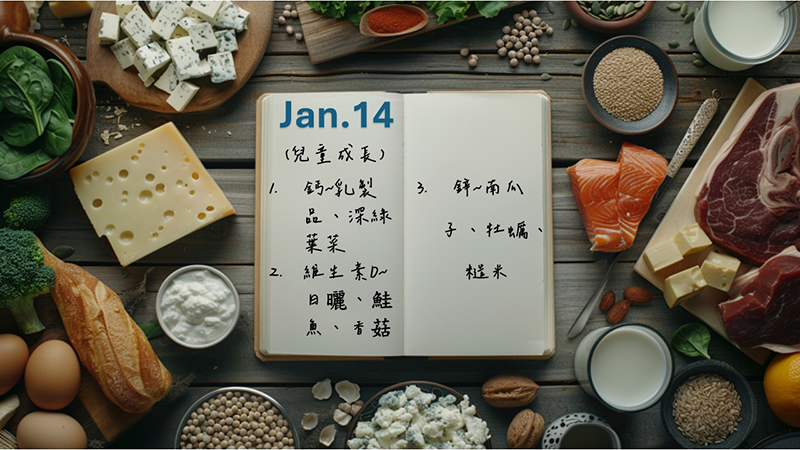 Jan.14
(兒童成長)
1. 鈣~乳製
品、深綠
葉菜
2. 維生素D~
日曬、鮭
魚、香菇
3. 鋅~南瓜
子、牡蠣、
糙米